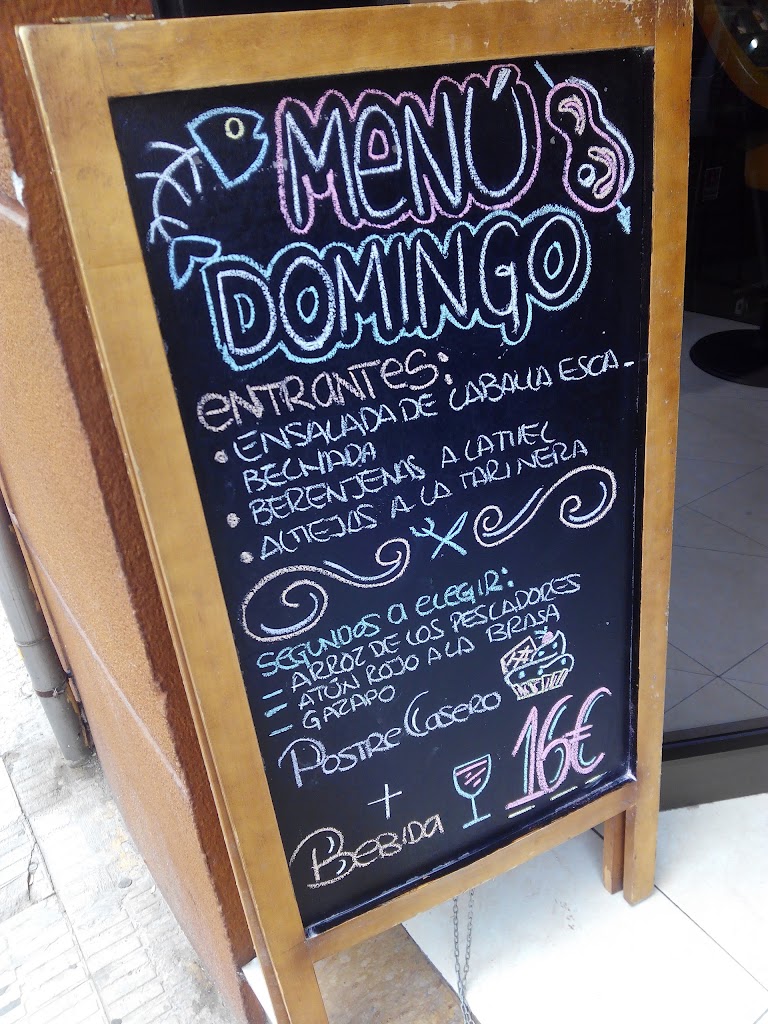 MENÚ
DOMINGO
ENTRANTES:
• ENSALADA DE CABALLA ESCA-
BECHADA
• BERENJENAS A LA MIEL
• ALMEJAS A LA MARINERA
SEGUNDOS A ELEGIR:
- ARROZ DE LOS PESCADORES
- ATÚN ROJO A LA BRASA
- GAZAPO
POSTRE CASERO
+
BEBIDA
16€